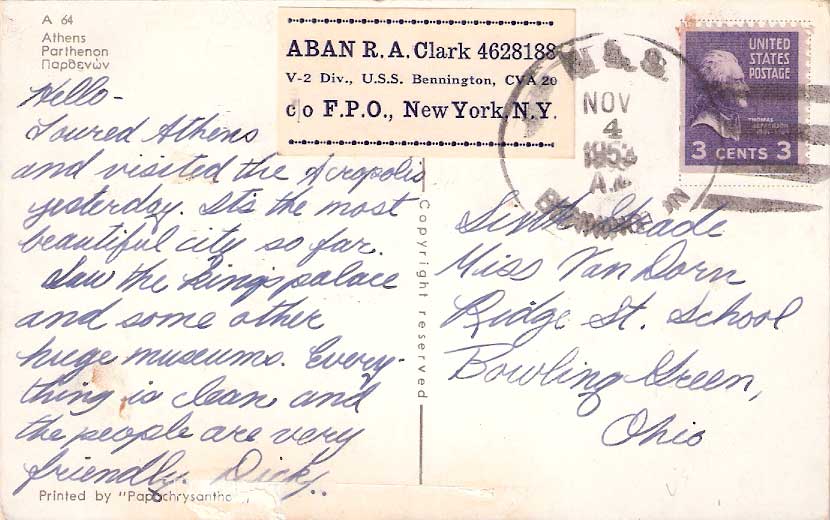 A 64
Athens
Parthenon
Παρθενών
Hello-
Toured Athens
and visited the Acropolis
yesterday. It's the most
beautiful city so far.
Saw the kings palace
and some other
huge museums. Every-
thing is clean and
the people are very
friendly. Dick.
Printed by "Papachrysantho
ABAN R. A. Clark 4628188
V-2 Div., U.S.S. Bennington, CVA 20
c/o F.P.O., New York, N.Y.
U.S.S.
NOV
4
1953
A.M.
BENNINGTON
UNITED
STATES
POSTAGE
THOMAS
JEFFERSON
3 CENTS 3
Copyright reserved
Sixth Grade
Miss Van Dorn
Ridge St. School
Bowling Green,
Ohio